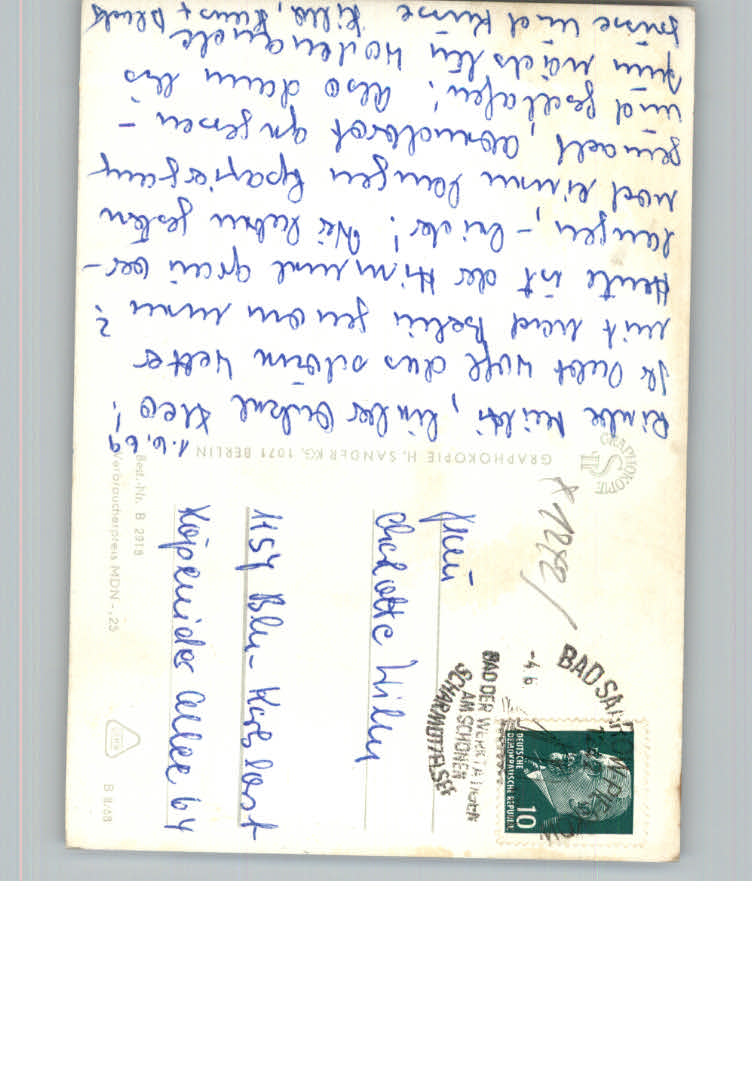 1.6.69
Liebe Heidi, lieber Onkel Theo!
Ihr habt wohl das schöne Wetter
mit nach Berlin genommen?
Heute ist der Himmel grau ver-
hangen, – leider! Wir haben gestern
noch einen langen Spaziergang
gemacht, Abendbrot gegessen –
und geschlafen! Also dann bis
zum nächsten Wochenende
Grüße und Küsse
Frau
Charlotte
1157 Bln-Karlshorst
Köpenicker Allee 64
BAD SAAROW-PIESKOW
-4.6.
BAD DER WERKTÄTIGEN
AM SCHÖNEN
SCHARMÜTZELSEE
DEUTSCHE
DEMOKRATISCHE REPUBLIK
10
GRAPHOKOPIE
GRAPHOKOPIE H. SANDER KG, 1071 BERLIN
Best.-Nr. B 2918
Verbraucherpreis MDN -,25
B 8/68